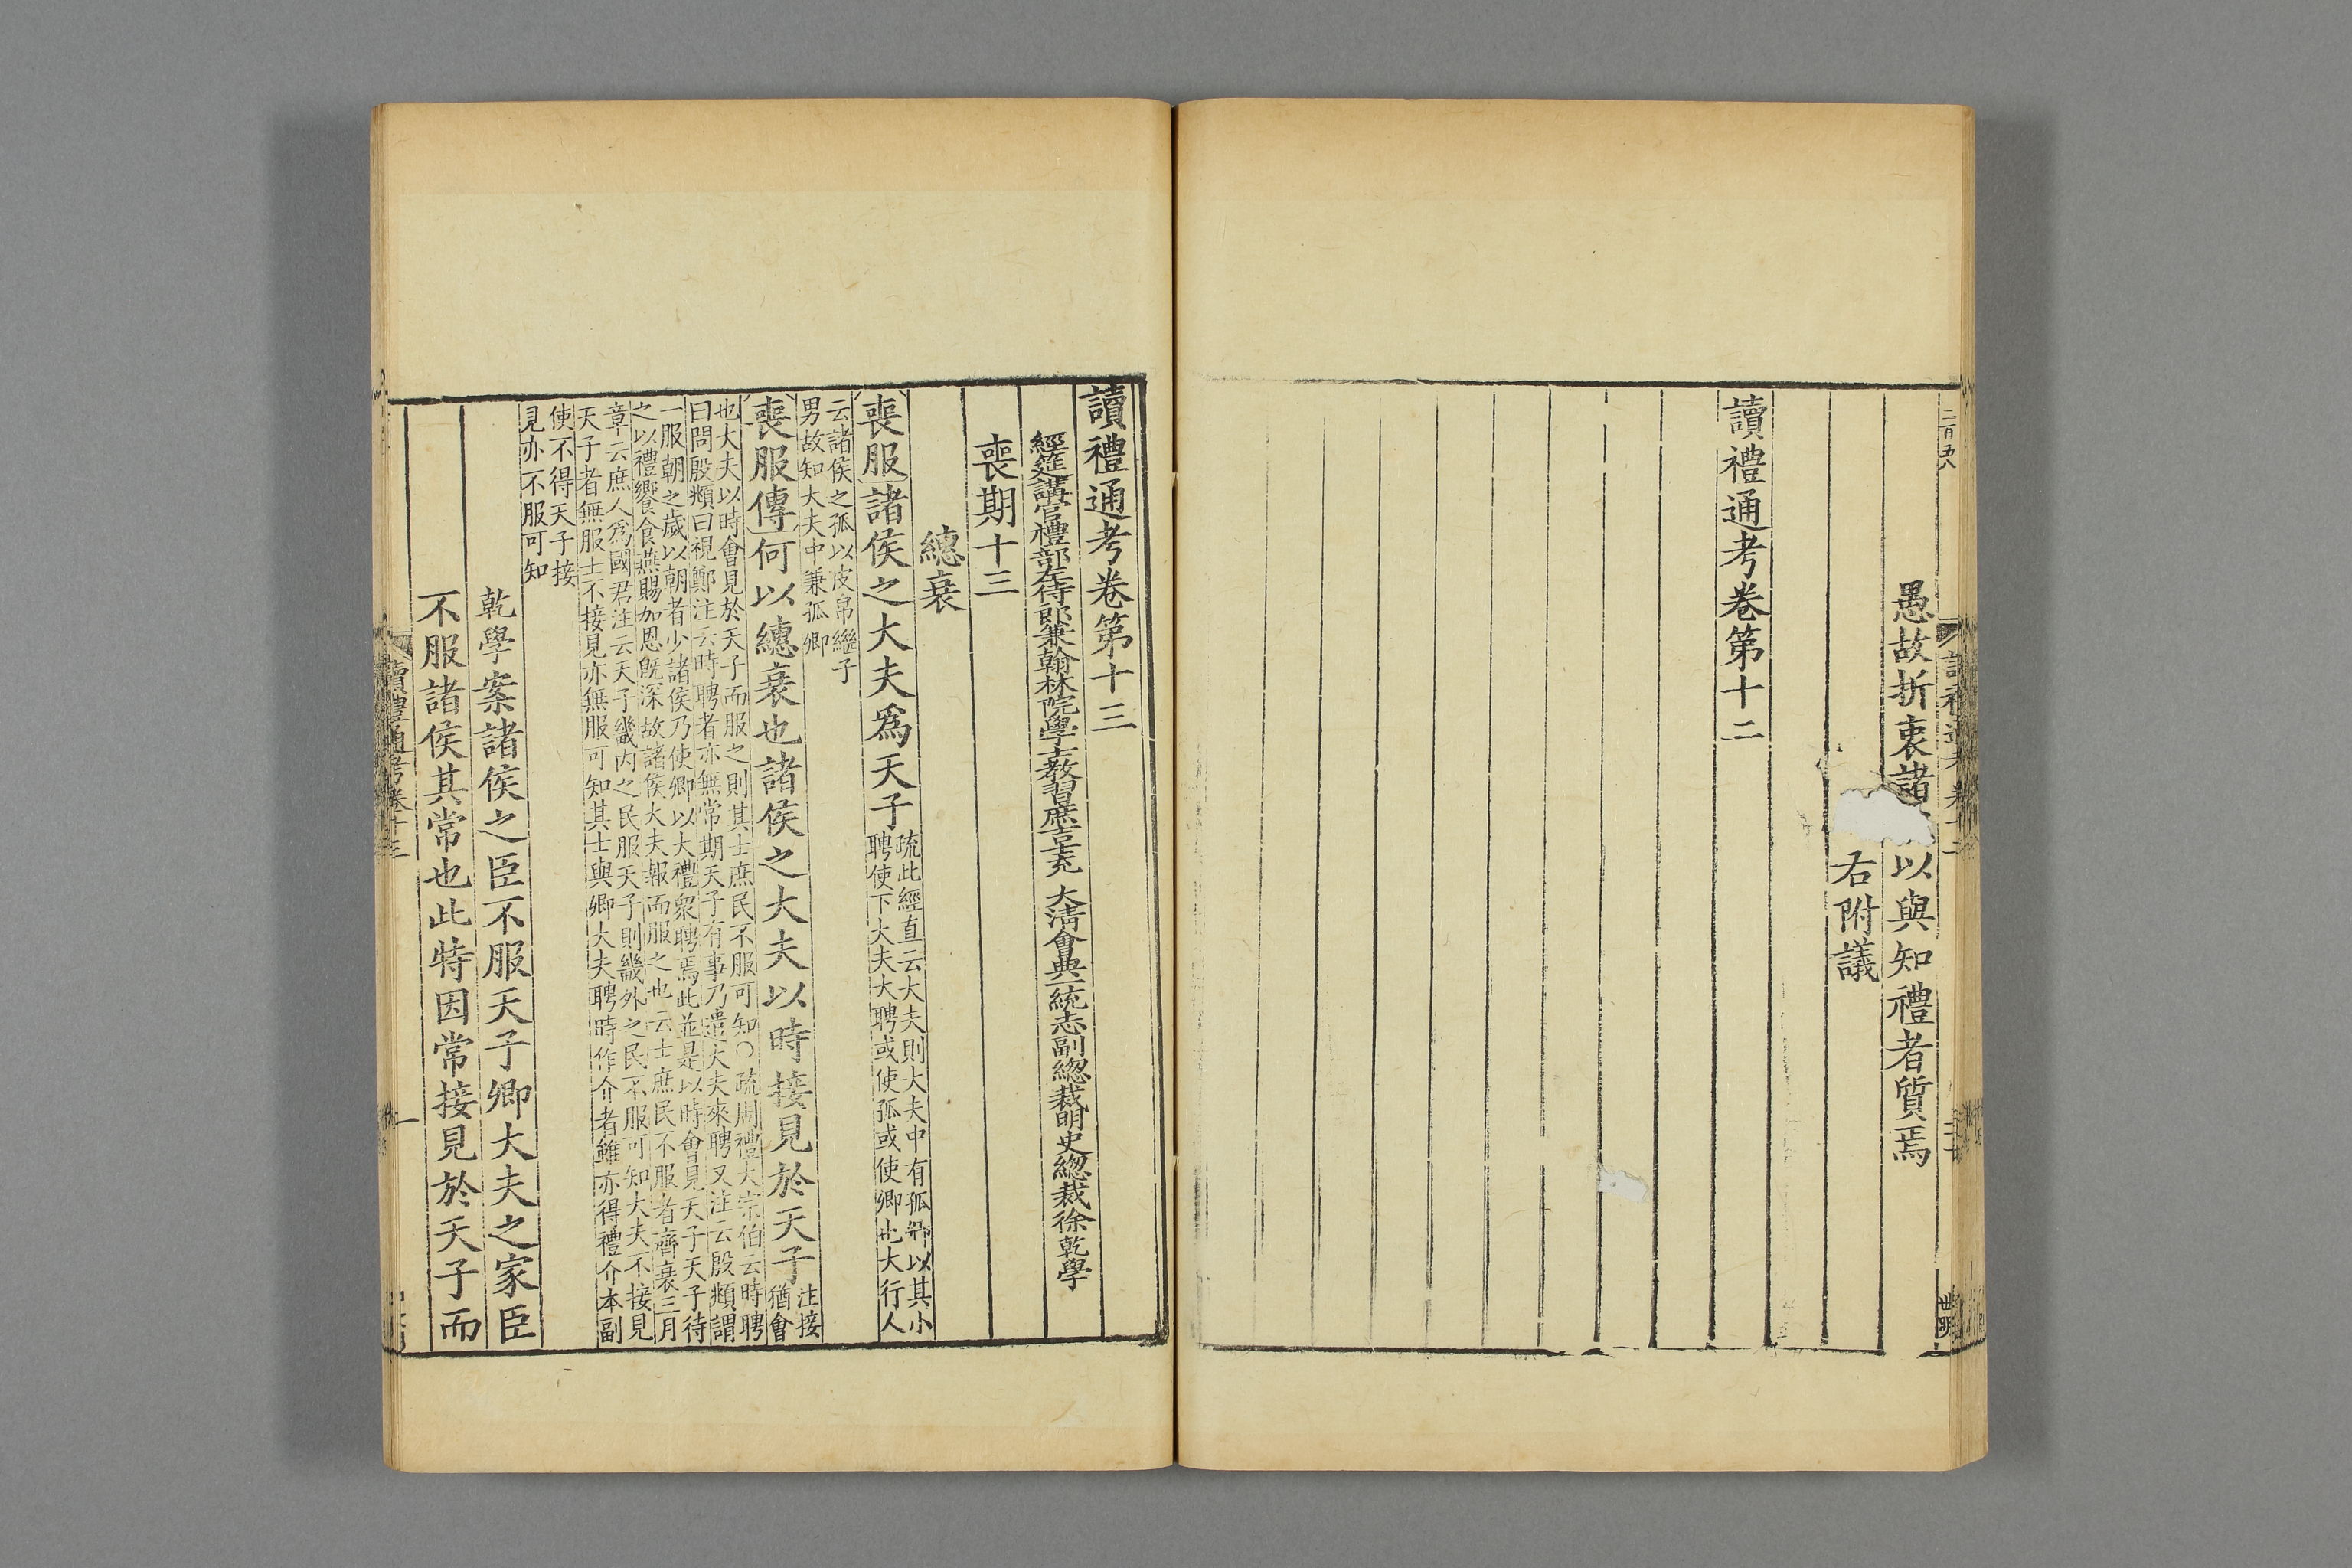 愚故折衷諸以與知禮者質焉
右附議
讀禮通考卷第十二
讀禮通考卷第十三
經筵講官禮部左侍郎兼翰林院學士教習庶吉士充　大清會典一統志副總裁明史總裁徐乾學
喪期十三
繐衰
喪服諸侯之大夫爲天子
疏此經直云大夫則大夫中有孤卿以其小
聘使下大夫大聘或使孤或使卿也大行人
云諸侯之孤以皮帛繼子
男故知大夫中兼孤卿
喪服傳何以繐衰也諸侯之大夫以時接見於天子
注接
猶會
也大夫以時會見於天子而服之則其士庶民不服可知○疏周禮大宗伯云時聘
曰問殷頫曰視鄭注云時聘者亦無常期天子有事乃遣大夫來聘又注云殷頫謂
一服朝之歲以朝者少諸侯乃使卿以大禮衆聘焉此並是以時會見天子天子待
之以禮饗食燕賜加恩旣深故諸侯大夫報而服之也云士庶民不服者齊衰三月
章云庶人爲國君注云天子畿內之民服天子則畿外之民不服可知大夫不接見
天子者無服士不接見亦無服可知其士與卿大夫聘時作介者雖亦得禮介本副
使不得天子接
見亦不服可知
乾學案諸侯之臣不服天子卿大夫之家臣
不服諸侯其常也此特因常接見於天子而
讀禮通考卷十三
一